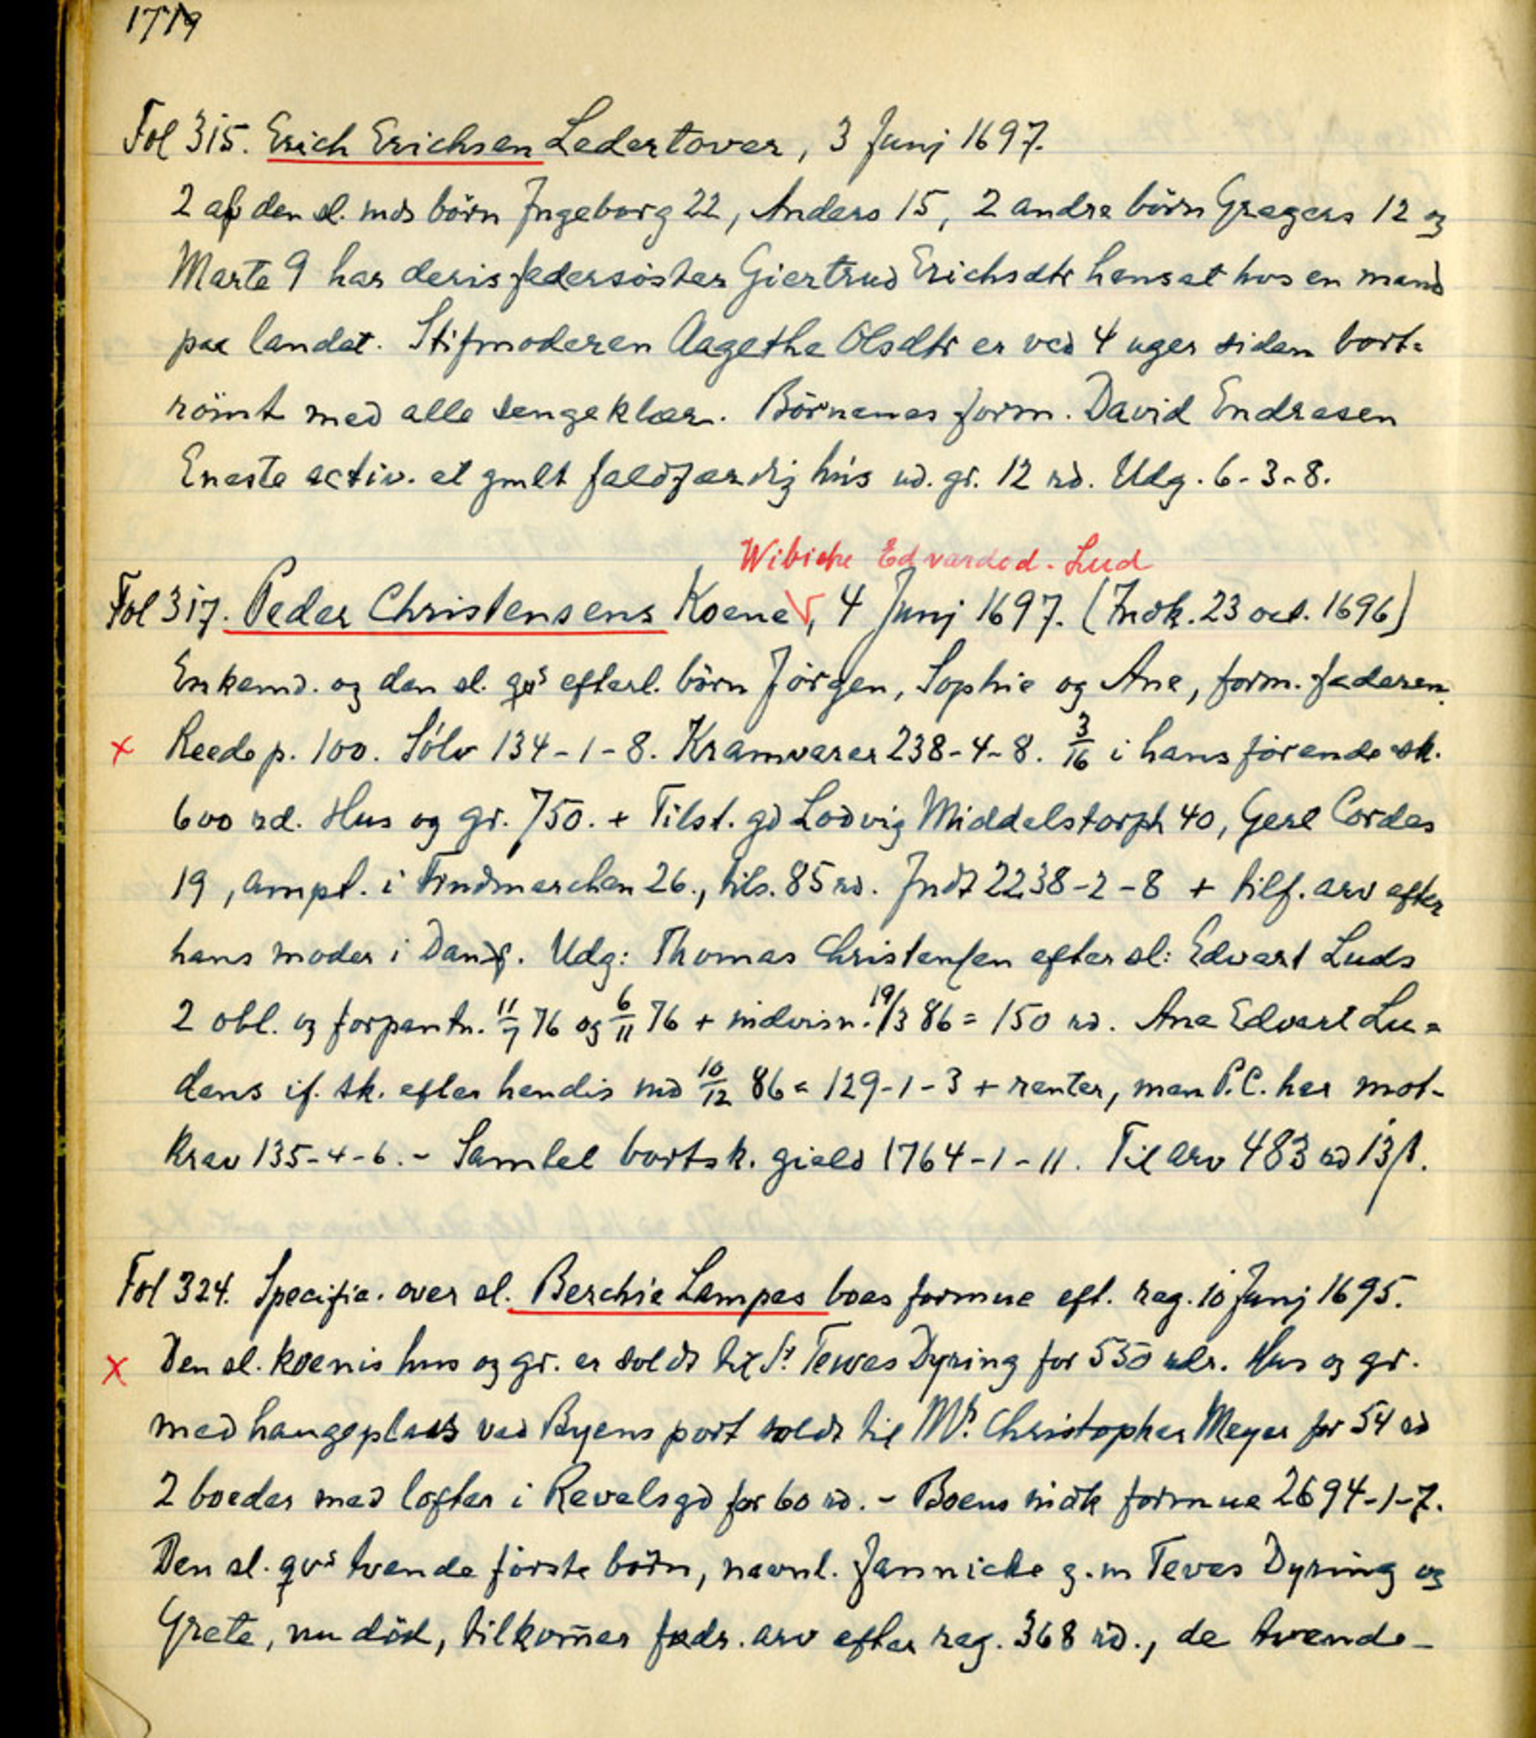 1779
Fol 315. Erich Erichsen Ledertover, 3 Junj 1697.
2 af den sl. mds börn Ingeborg 22, Anders 15, 2 andre börn Gregers 12 og
Marte 9 har deris fadersöster Giertrud Erichsdtr hensat hos en mand
paa landet. Stifmoderen Aagethe Olsdtr er ved 4 uger siden bort-
römt med alle sengeklær. Börnenes form. David Endresen
Eneste activ. et gmlt faldfærdig hús ud. gr. 12 rd. Udg. 6-3-8.
Wibiche Edvardsd. Lud
Fol 317. Peder Christensens Koene, 4 Junj 1697. (Indk. 23 oct. 1696)
Enkemd. og den sl. qvs efterl. börn Jörgen, Sophie og Ane, form. faderen.
x Reede p. 100. Sölv 134-1-8. Kramvarer 238-4-8. 3/16 i hans förende sk.
600 rd. Hus og gr. 750. + Tilst. gd Lodvig Middelstorph 40, Gerl Cordes
19, ampt. i Findmarchen 26., tils. 85 rd. Indt 2238-2-8 + tilf. arv efter
hans moder i Danm. Udg: Thomas Christensen efter sl: Edvart Luds
2 obl. og forpantn. 11/7 76 og 6/11 76 + indvisn. 19/3 86 = 150 rd. Ane Edvart Lu-
dens if. sk. efter hendis md 10/12 86 = 129-1-3 + renter, men P.C. har mot-
krav 135-4-6. - Samlet bortsk. gield 1764-1-11. Til arv 483 rd 13 s.
Fol 324. Specific. over sl. Berchie Lampes boes formue eft. reg. 10 Junj 1695.
x Den sl. koenis hus og gr. er soldt til Sr. Tewes Dyring for 550 rdr. Hus og gr.
med haugeplads ved Byens port soldt til Mr. Christopher Meyer for 54 rd
2 boeder med lofter i Revelsgd for 60 rd. - Boens indk formue 2694-1-7.
Den sl. qvs tvende förste börn, navnl. Jannicke g.m Teves Dyring og
Grete, nu död, tilkomer fadr. arv efter reg. 368 rd., de tvende-